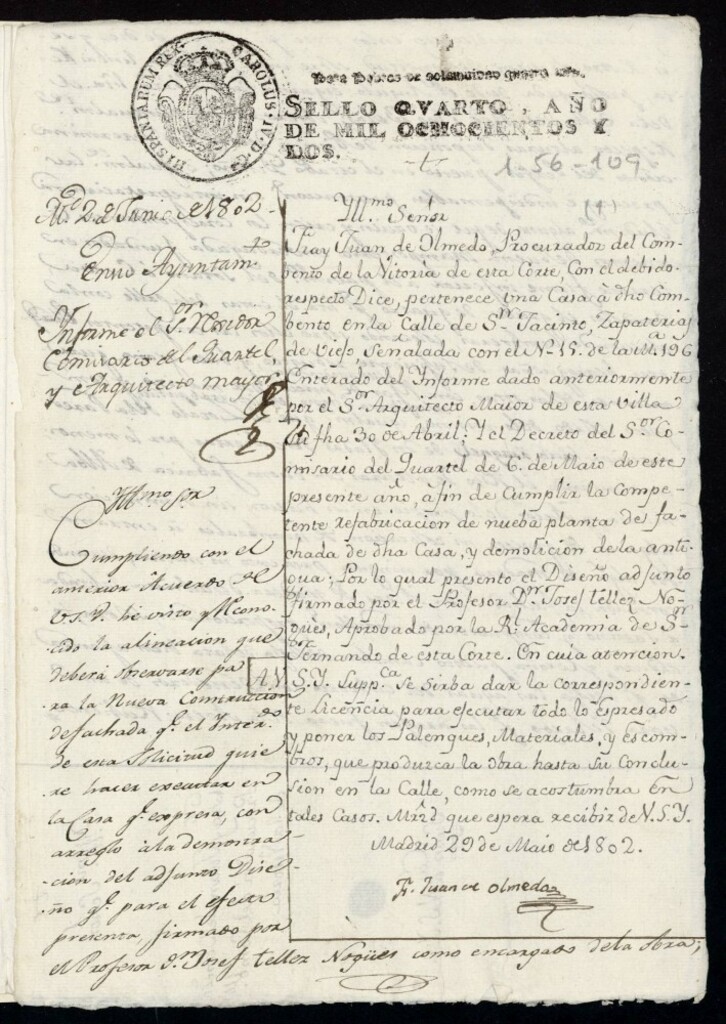 HISPANIARUM REX CAROLUS IV D G
Para Pobres de solemnidad quatro mrs.
SELLO QVARTO, AÑO
DE MIL OCHOCIENTOS Y
DOS.
1-56-109
(1)
Md. 2 de Junio de 1802
En su Ayuntamto
Informe el Sr. Rexidor
Comisario del Quartel,
y el Arquitecto mayor
Yllmo Sor
Cumpliendo con el
anterior Acuerdo de
V.S.Y. he visto y Recono-
cido la alineacion que
deberá observarse pa
ra la Nueva Construccion
de fachada qe. el Interdo.
de esta Solicitud quie
re hacer executar en
la Casa qe. expresa, con
arreglo à la demostra
cion del adjunto Dise
ño qe. para el efecto
presenta firmado por
el Profesor Dn. Josef tellez Nogües como encargado de la obra;
Yllmo. Señor
Fray Juan de Olmedo, Procurador del Com-
bento de la Vitoria de esta Corte, Con el debido
respecto Dice, pertenece vna Casa à dho Com-
bento en la Calle de Sn. Jacinto, Zapaterias
de Viejo, Señalada con el No. 15. de la Ma. 196
Enterado del Informe dado anteriormente
por el Sor. Arquitecto Maior de esta Villa
fha 30 de Abril; Y el Decreto del Sor. Co-
misario del Quartel de 6. de Maio de este
presente año, à fin de Cumplir la Compe-
tente refabricacion de nueba planta de fa-
chada de dha Casa, y demolicion de la anti-
gua; Por lo qual presento el Diseño adjunto
firmado por el Profesor Dn. Josef tellez No-
gües, Aprobado por la Rl. Academia de Sn.
Fernando de esta Corte. En cuia atencion.
A V.S.Y. Suppca. se sirba dar la correspondien-
te Licencia para ejecutar todo lo Espresado
y poner los Palenques, Materiales, y Escom-
bros, que produzca la obra hasta su Conclu-
sion en la Calle, como se acostumbra En
tales Casos. Mrzd. que espera recibir de V.S.Y.
Madrid 29 de Maio de 1802.
Fr. Juan de Olmedo